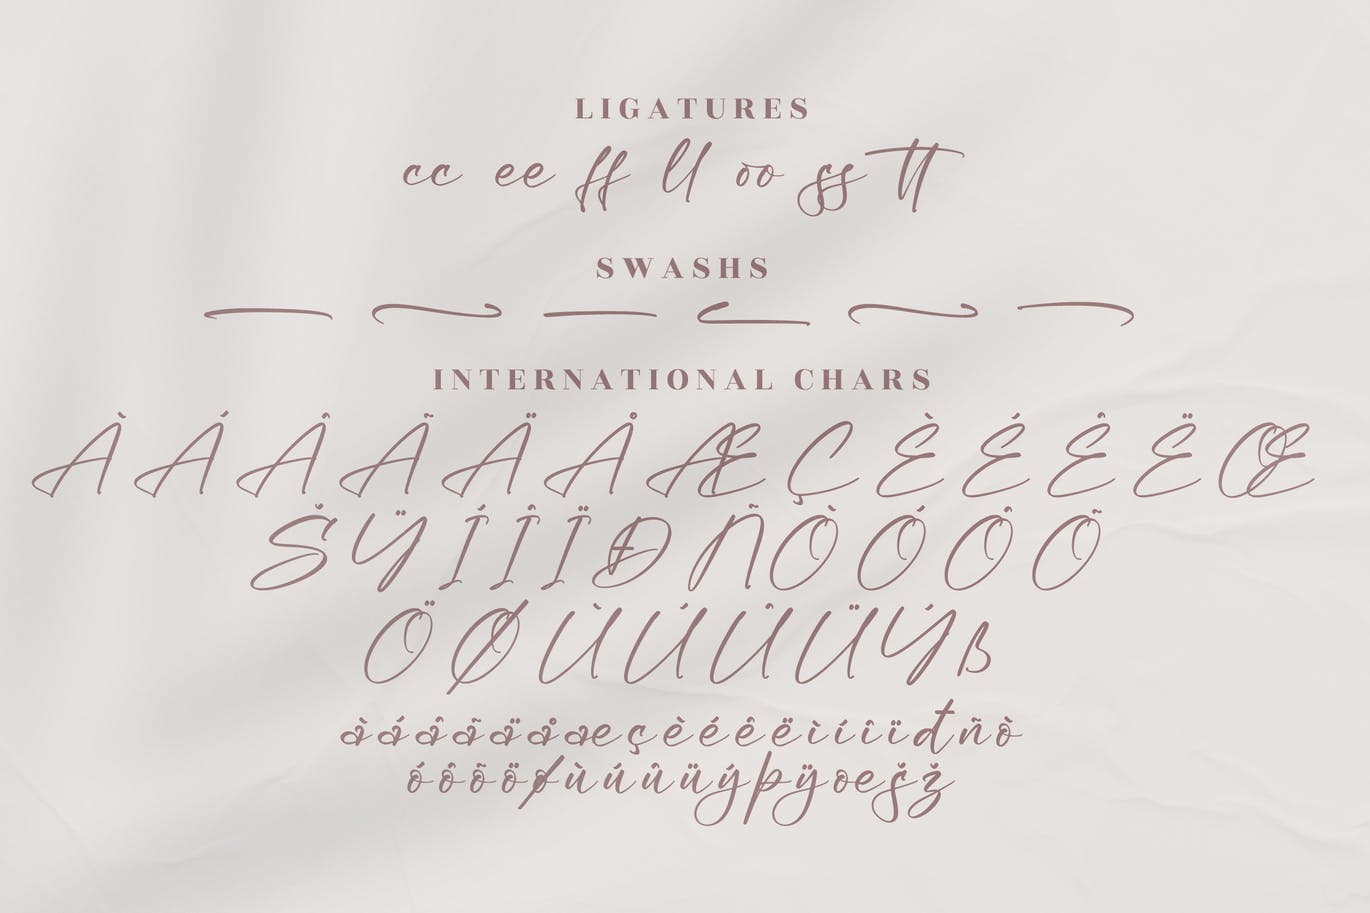 LIGATURES
cc ee ff ll oo ss tt
SWASHS
INTERNATIONAL CHARS
À Á Â Ã Ä Å Æ Ç È É Ê Ë Œ
Š Ÿ Í Î Ï Đ Ñ Ò Ó Ô Õ
Ö Ø Ù Ú Û Ü Ý ß
à á â ã ä å æ ç è é ê ë ì í î ï đ ñ ò
ó ô õ ö ø ù ú û ü ý þ ÿ œ š ž